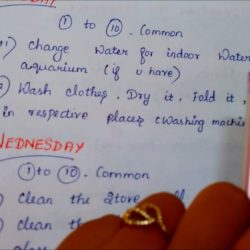 ① to ⑩. Common
1) Change Water for indoor Water
aquarium (if u have)
2) Wash clothes. Dry it, Fold it,
in respective places (Washing machin
WEDNESDAY
① to ⑩. Common
Clean the Store
Clean the